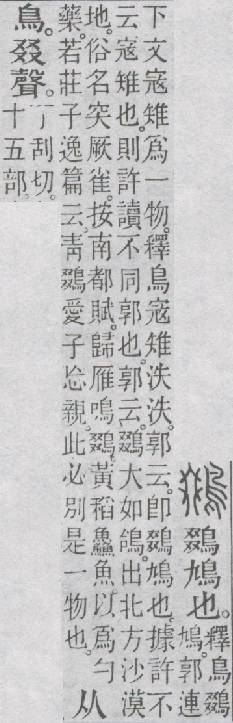 鵽鳩也。
釋鳥鵽
鳩。郭連
下文寇雉爲一物。釋鳥寇雉泆泆。郭云。即鵽鳩也。據許不
云寇雉也。則許讀不同郭也。郭云。鵽大如鴿。出北方沙漠
地。俗名突厥雀。按南都賦。歸雁鳴鵽。黃稻鱻魚以爲勺
藥。若莊子逸篇云。青鵽愛子忘親。此必別是一物也。
从
鳥。叕聲。
丁刮切。
十五部